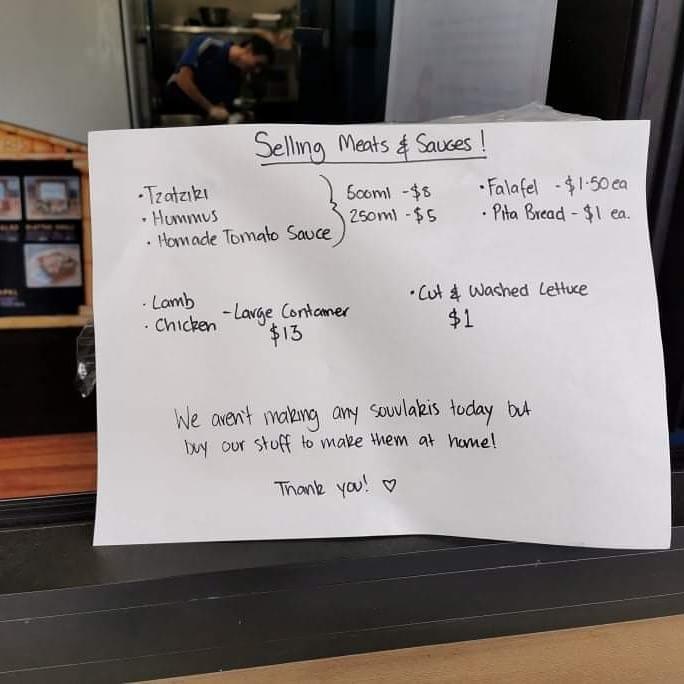 Selling Meats & Sauces !
• Tzatziki
• Hummus
• Homade Tomato Sauce
500ml - $8
250ml - $5
• Falafel - $1.50 ea
• Pita Bread - $1 ea.
• Lamb
• Chicken
- Large Container
$13
• Cut & Washed Lettuce
$1
We aren't making any souvlakis today but
buy our stuff to make them at home!
Thank you! ♡